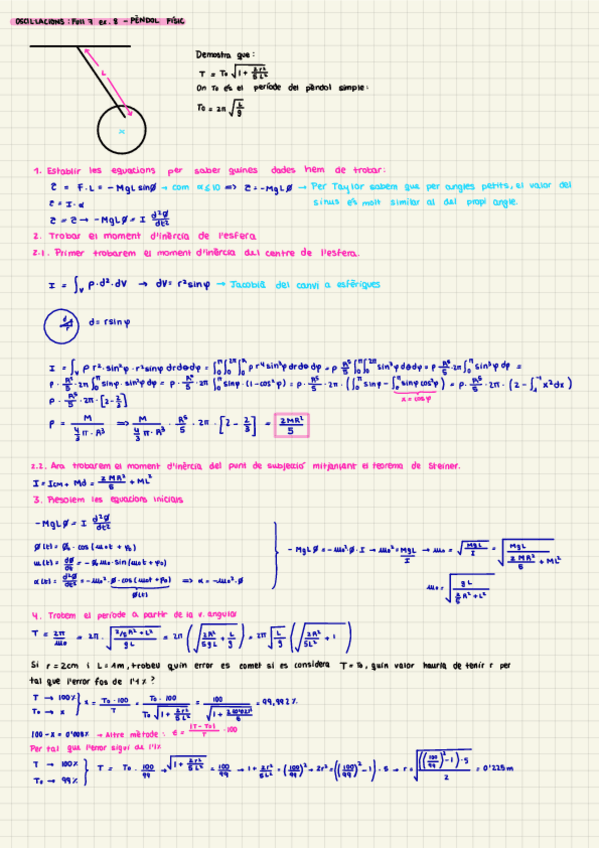 OSCIL·LACIONS: Full 7 ex. 8 - PÈNDOL FÍSIC
L
Demostra que:
T = T₀ √(1 + 2r²/5L²)
On T₀ és el període del pèndol simple:
T₀ = 2π √(L/g)
1. Establir les equacions per saber quines dades hem de trobar:
τ = F·L = -MgL sinø → com α≤10 => τ = -MgLø → Per Taylor sabem que per angles petits, el valor del
sinus és molt similar al del propi angle.
τ = I·α
τ = τ → -MgLø = I d²ø/dt²
2. Trobar el moment d'inèrcia de l'esfera
2.1. Primer trobarem el moment d'inèrcia del centre de l'esfera.
I = ∫ᵥ ρ·d²·dV → dV = r²sinφ → Jacobià del canvi a esfèriques
d = rsinφ
I = ∫ᵥ ρ r²·sin²φ·r²sinφ drdθdφ = ∫₀^π∫₀^2π∫₀^R ρ r⁴sin³φ drdθdφ = ρ R⁵/5 ∫₀^π∫₀^2π sin³φ dθdφ = ρ R⁵/5 · 2π ∫₀^π sin³φ dφ =
ρ · R⁵/5 · 2π ∫₀^π sinφ · sin²φ dφ = ρ · R⁵/5 · 2π ∫₀^π sinφ · (1-cos²φ) = ρ · R⁵/5 · 2π · (∫₀^π sinφ - ∫₀^π sinφ cos²φ) = ρ · R⁵/5 · 2π · (2 - ∫₁^-1 x²dx)
x = cosφ
ρ · R⁵/5 · 2π · [2 - 2/3]
ρ = M/(4/3 π·R³) => M/(4/3 π·R³) · R⁵/5 · 2π · [2 - 2/3] = 2MR²/5
2.2. Ara trobarem el moment d'inèrcia del punt de subjecció mitjançant el teorema de Steiner.
I = Icm + Md = 2MR²/5 + ML²
3. Resolem les equacions inicials
-MgLø = I d²ø/dt²
ø(t) = ø₀ · cos(ω₀t + φ₀)
ω(t) = dø/dt = -ø₀ω₀ sin(ω₀t + φ₀)
α(t) = d²ø/dt² = -ω₀² · ø₀ · cos(ω₀t + φ₀) => α = -ω₀² · ø
ø(t)
-MgLø = -ω₀² · ø · I → ω₀² = MgL/I → ω₀ = √(MgL/I) = √(MgL/(2MR²/5 + ML²))
ω₀ = √(gL/(2/5 R² + L²))
4. Trobem el període a partir de la v. angular
T = 2π/ω₀ = 2π · √((2/5R² + L²)/gL) = 2π (√(2R²/5gL + L/g)) = 2π √(L/g) (√(2R²/5L² + 1))
Si r = 2cm i L = 1m, trobeu quin error es comet si es considera T = T₀, quin valor hauria de tenir r per
tal que l'error fos de l'1%?
T → 100%
T₀ → x
x = T₀·100/T = T₀·100/(T₀√(1 + 2r²/5L²)) = 100/√(1 + 2·0'02²/5) = 99,992%
100 - x = 0'008% → Altre mètode: ε = |T - T₀|/T · 100
Per tal que l'error sigui de l'1%
T → 100%
T₀ → 99%
T = T₀ · 100/99 → √(1 + 2r²/5L²) = 100/99 → 1 + 2r²/5L² = (100/99)² → 2r² = ((100/99)² - 1) · 5 → r = √(((100/99)² - 1)·5/2) = 0'225m